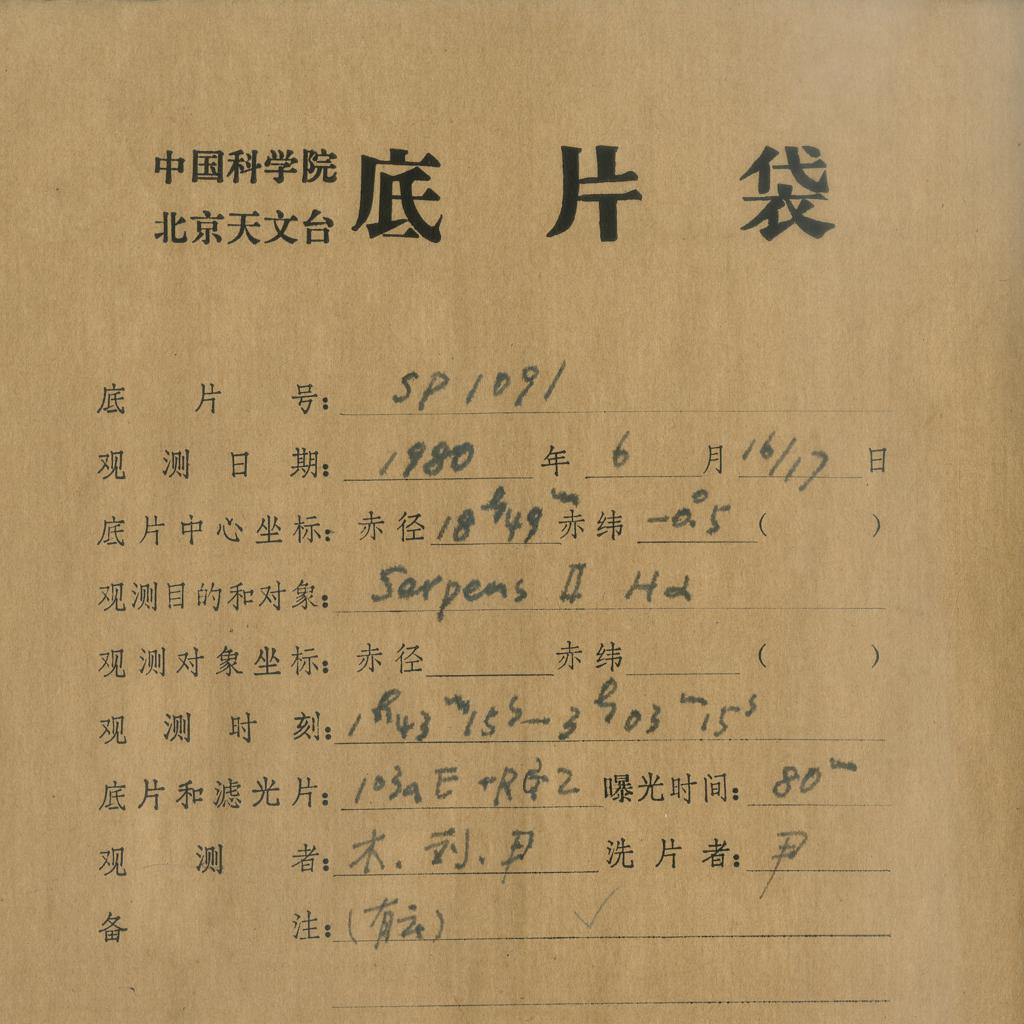 中国科学院
北京天文台
底片袋
底片号: SP 1091
观测日期: 1980 年 6 月 16/17 日
底片中心坐标: 赤径 18h49m 赤纬 -0°.5 ( )
观测目的和对象: Serpens II Hα
观测对象坐标: 赤径 赤纬 ( )
观测时刻: 1h43m15s-3h03m15s
底片和滤光片: 103aE + RG2 曝光时间: 80m
观测者: 木. 刘. 尹 洗片者: 尹
备注: (有云) ✓